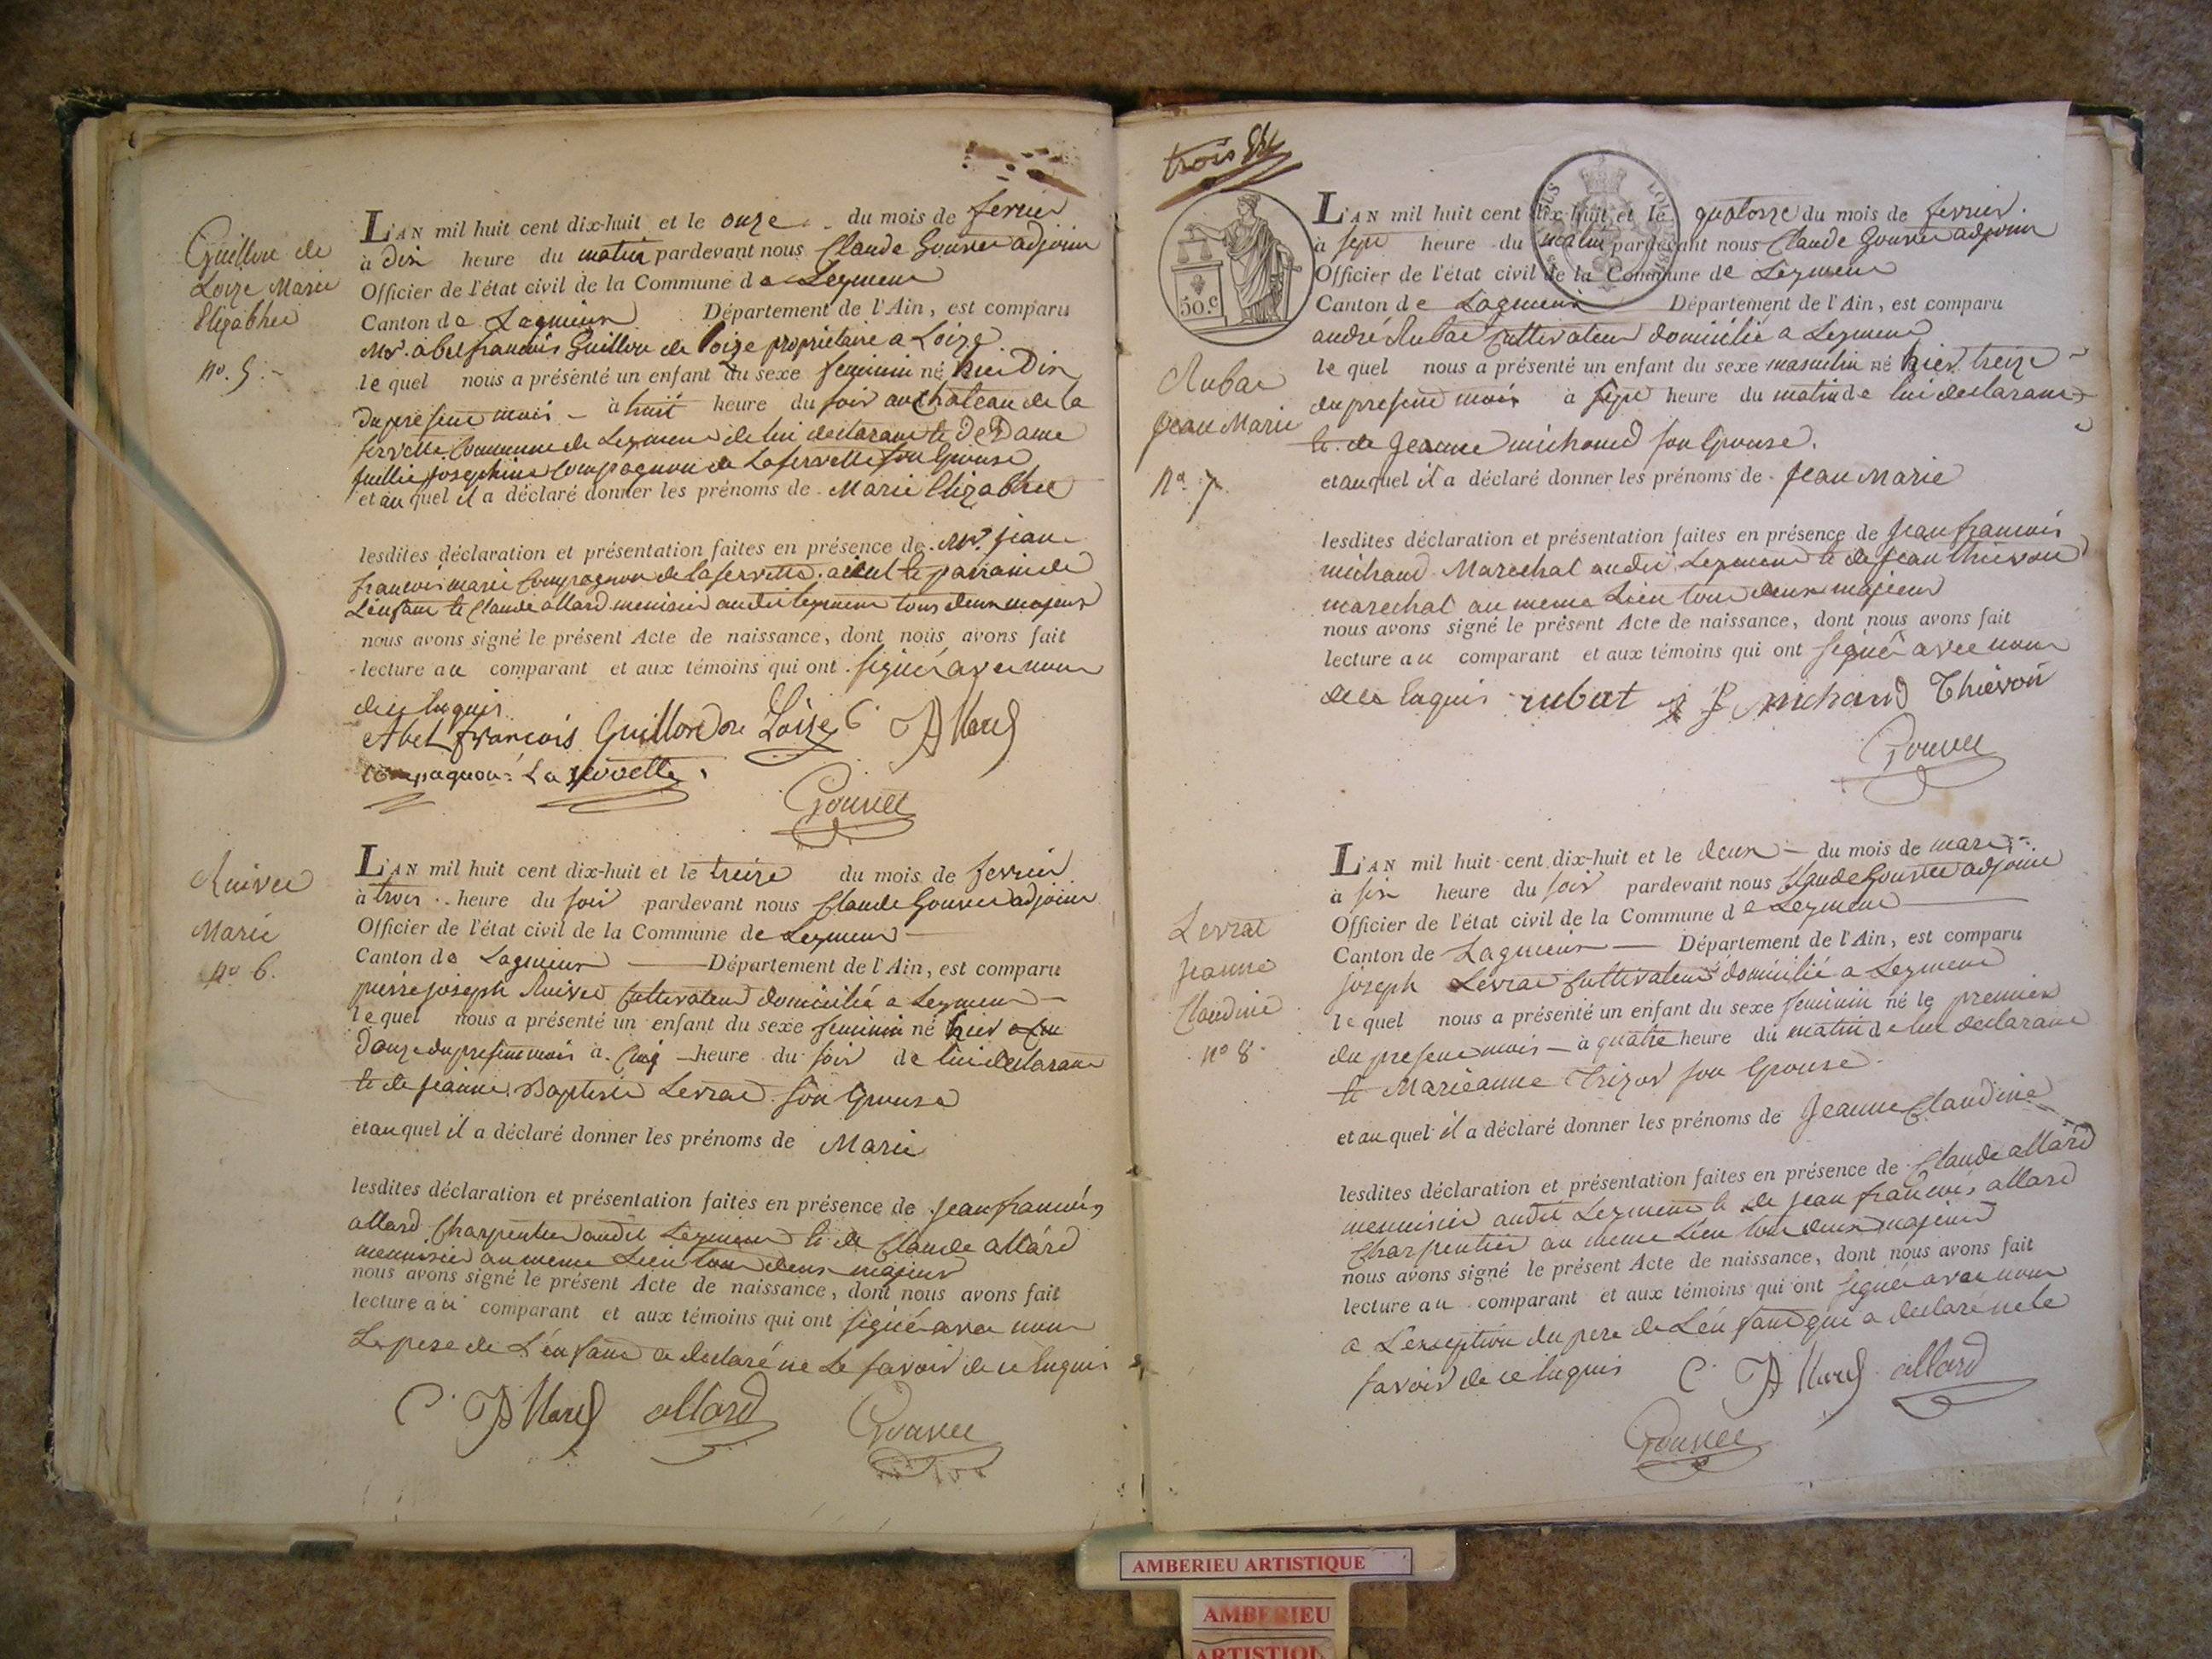 Guillon de
Loize Marie
Elizabhet
no. 5.
L'AN mil huit cent dix-huit et le onze du mois de fevrier
à dix heure du matin pardevant nous Claude Gouvet adjoint
Officier de l'état civil de la Commune de Leyment
Canton de Lagnieux Département de l'Ain, est comparu
Mr. abel francois Guillon de loize propriétaire a Loize
lequel nous a présenté un enfant du sexe feminin né hier Dix
du present mois à huit heure du soir au chateau de la
servette Commune de Leyment de lui declarant et de Dame
Josephine Compagnon de Laservette son Epouse
et au quel il a déclaré donner les prénoms de Marie Elizabhet
lesdites déclaration et présentation faites en présence de Mr. jean
francois marie Compagnon de laservette, aieul et parrain de
L'enfant et Claude allard menisier audit leyment tous deux majeurs
nous avons signé le présent Acte de naissance, dont nous avons fait
lecture au comparant et aux témoins qui ont signé avec nous
de ce Enquis
Abel françois Guillon De Loize C. Allard
compagnon La servette
Gouvet
Ruivet
Marie
no 6.
L'AN mil huit cent dix-huit et le treize du mois de fevrier
à trois heure du soir pardevant nous Claude Gouvet adjoint
Officier de l'état civil de la Commune de Leyment
Canton de Lagnieux Département de l'Ain, est comparu
pierre joseph Ruivet Cultivateur domicilié a Leyment
lequel nous a présenté un enfant du sexe feminin né hier
Douze du present mois à Cinq heure du soir de lui declarant
et de jeanne Baptiste Levrat son Epouse
et au quel il a déclaré donner les prénoms de Marie
lesdites déclaration et présentation faites en présence de jean francois
allard Charpentier audit Leyment et de Claude allard
menuisier au meme Lieu tous deux majeurs
nous avons signé le présent Acte de naissance, dont nous avons fait
lecture au comparant et aux témoins qui ont signé avec nous
Le pere de L'enfant a declaré ne Le savoir de ce Enquis
C. Allard allard Gouvet
trois
50.c
Rubat
Jean Marie
no 7.
L'AN mil huit cent dix-huit et le quatorze du mois de fevrier.
à sept heure du matin pardevant nous Claude Gouvet adjoint
Officier de l'état civil de la Commune de Leyment
Canton de Lagnieux Département de l'Ain, est comparu
andré Rubat Cultivateur domicilié a Leyment
lequel nous a présenté un enfant du sexe masculin né hier treize
du present mois à sept heure du matin de lui declarant
et de Jeanne michaud son Epouse.
et au quel il a déclaré donner les prénoms de Jean Marie
lesdites déclaration et présentation faites en présence de Jean francois
michaud Marechal audit Leyment et de jean thievon
marechal au meme Lieu tous deux majeurs
nous avons signé le présent Acte de naissance, dont nous avons fait
lecture au comparant et aux témoins qui ont signé avec nous
de ce Enquis rubat J F michaud Thievon
Gouvet
Levrat
Jeanne
Claudine
no 8.
L'AN mil huit cent dix-huit et le deux du mois de mars
à six heure du soir pardevant nous Claude Gouvet adjoint
Officier de l'état civil de la Commune de Leyment
Canton de Lagnieux Département de l'Ain, est comparu
joseph Levrat Cultivateur domicilié a Leyment
lequel nous a présenté un enfant du sexe feminin né le premier
du present mois à quatre heure du matin de lui declarant
et Marieanne Trizot son Epouse.
et au quel il a déclaré donner les prénoms de Jeanne Claudine
lesdites déclaration et présentation faites en présence de Claude allard
menuisier audit Leyment et de jean francois allard
Charpentier au meme Lieu tous deux majeurs
nous avons signé le présent Acte de naissance, dont nous avons fait
lecture au comparant et aux témoins qui ont signé avec nous
a L'exception du pere de L'enfant qui a declaré ne le
savoir de ce Enquis C. Allard allard
Gouvet
AMBERIEU ARTISTIQUE
AMBERIEU
ARTISTIQU